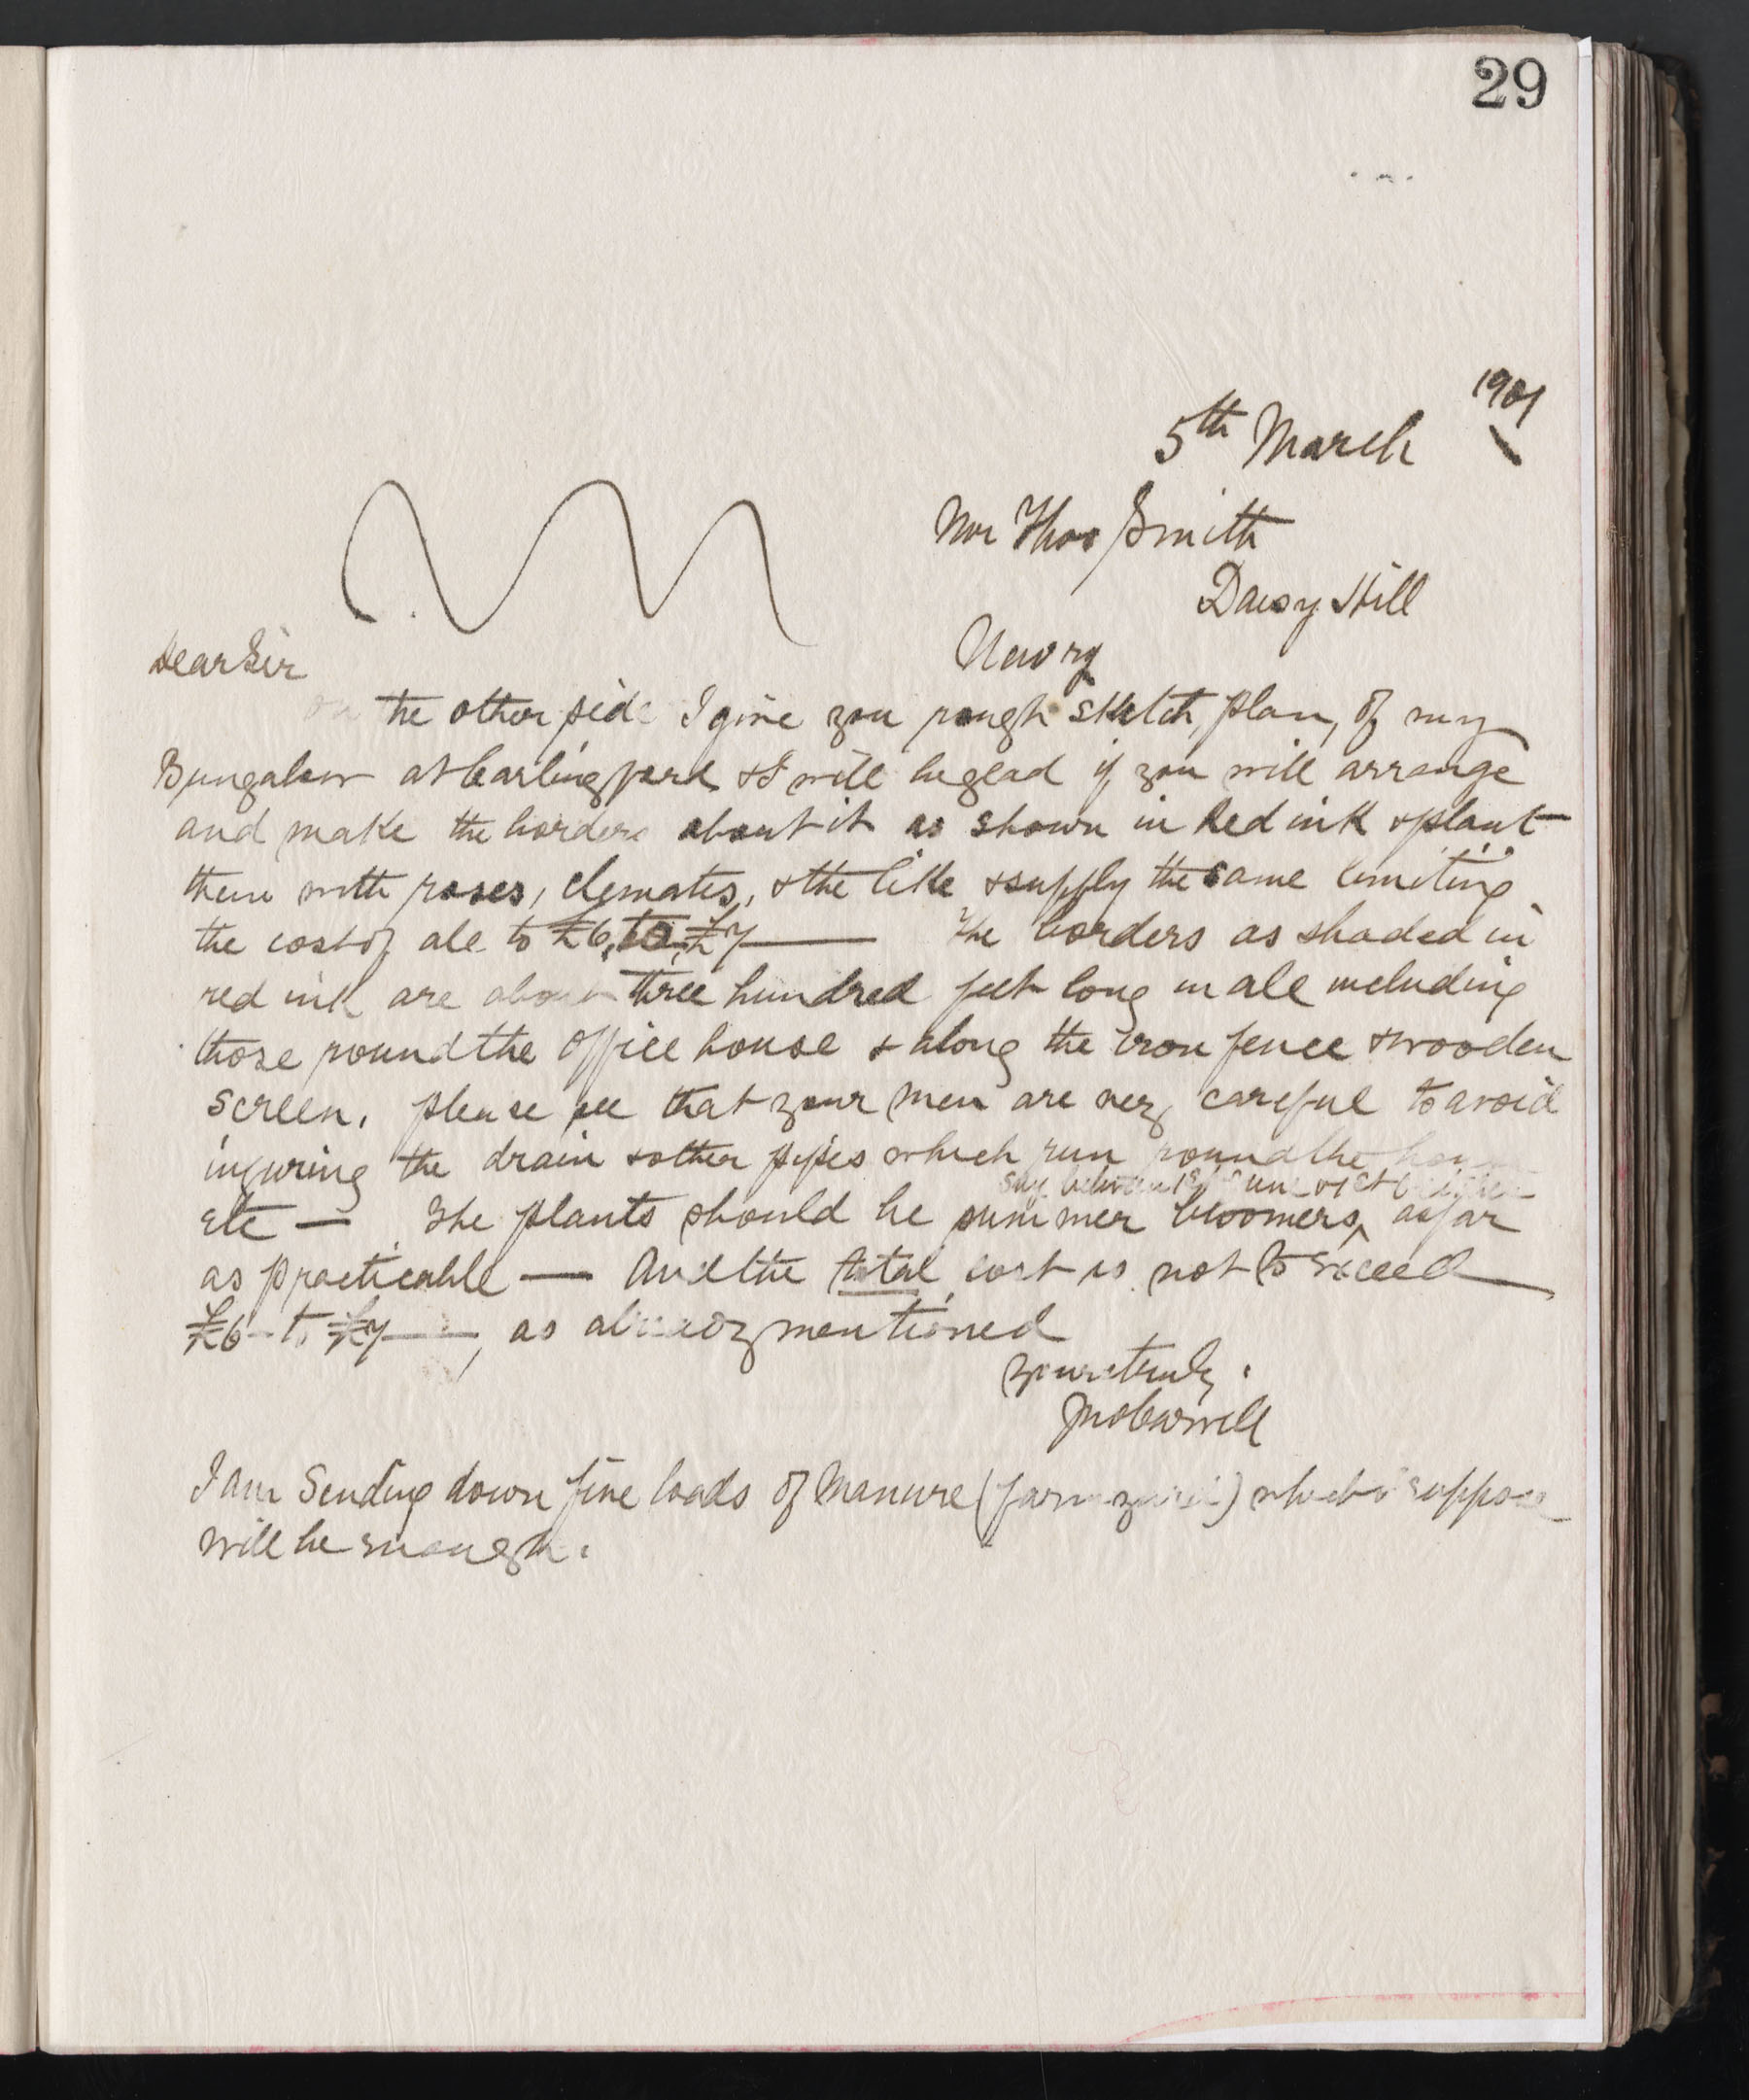 29
1901
5th March
Mr Thos Smith
Daisy Hill
Newry
Dear Sir
on the other side I give you rough sketch, plan, of my
Bungalow at Carlingford & I will be glad if you will arrange
and make the borders about it as shown in Red ink & plant
them with roses, clematis, & the like & supply the same limiting
the cost of all to £6, to £7 — The borders as shaded in
red ink are about three hundred feet long in all including
those round the office house & along the iron fence & wooden
screen. please see that your men are very careful to avoid
injuring the drain & other pipes which run round the house
say between 1st June & 1st October
etc — The plants should be summer bloomers ^ as far
as practicable — And the total cost is not to exceed
£6 – to £7 —, as already mentioned
yours truly.
I am sending down five loads of manure (farm yard) which I suppose
will be enough.